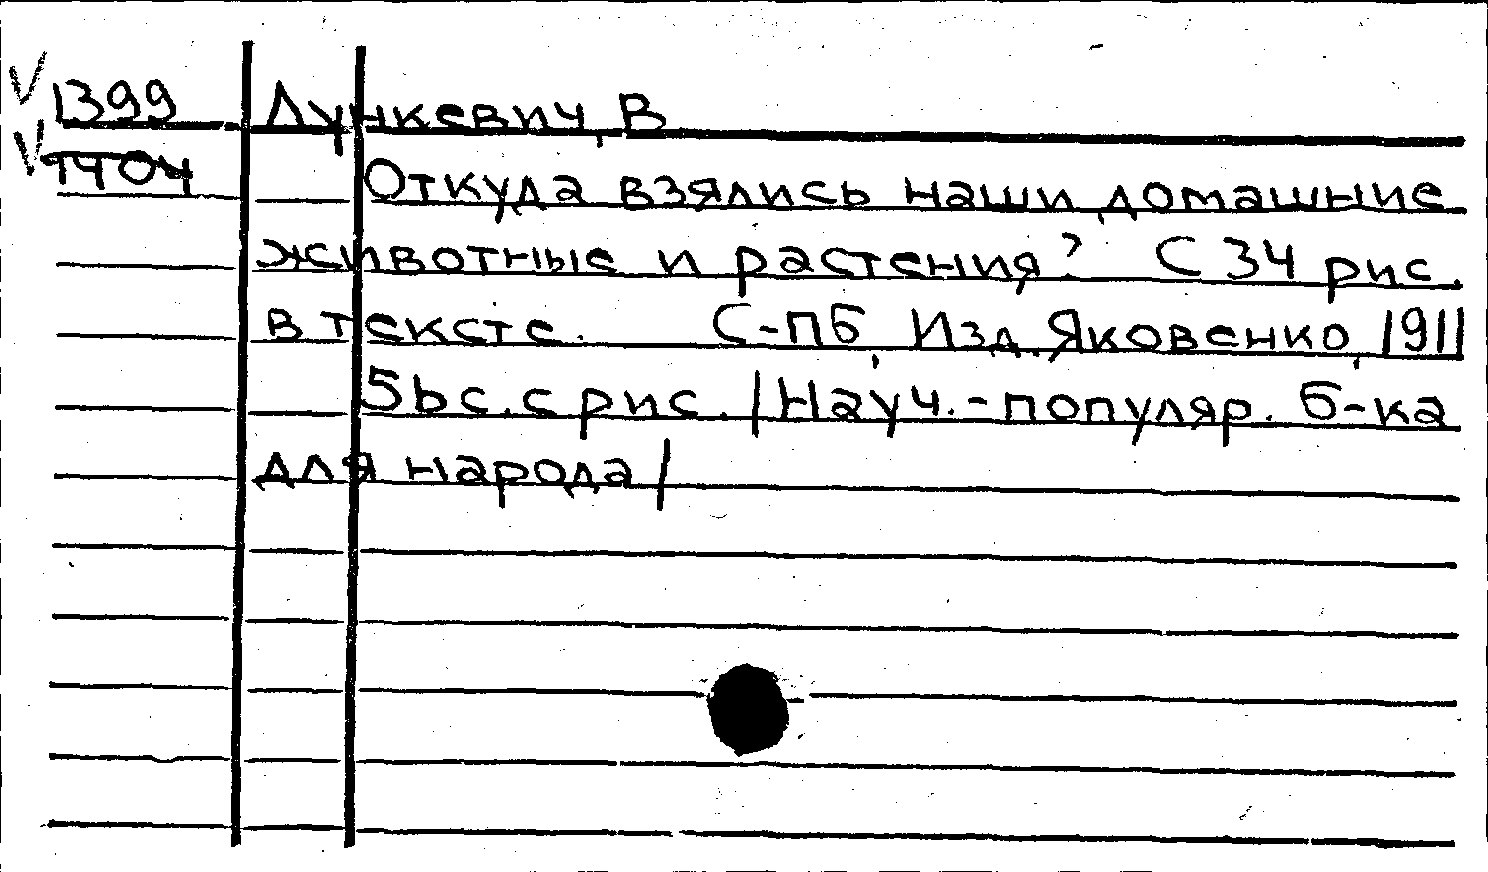 1399 Лункевич, В
1404 Откуда взялись наши домашние
животные и растения? С 34 рис.
в тексте. С-пб, Изд. Яковенко, 1911
56 с. с рис. /Науч.-популяр. б-ка
для народа/